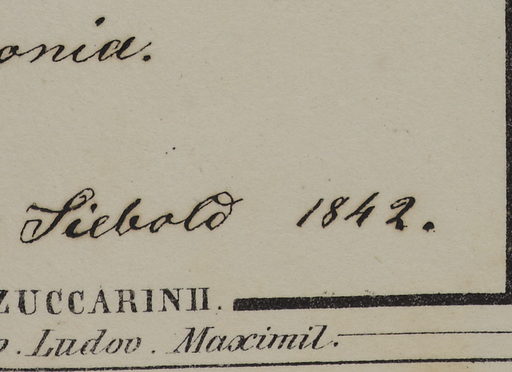 onia.
Siebold 1842.
ZUCCARINII.
o. Ludov. Maximil.